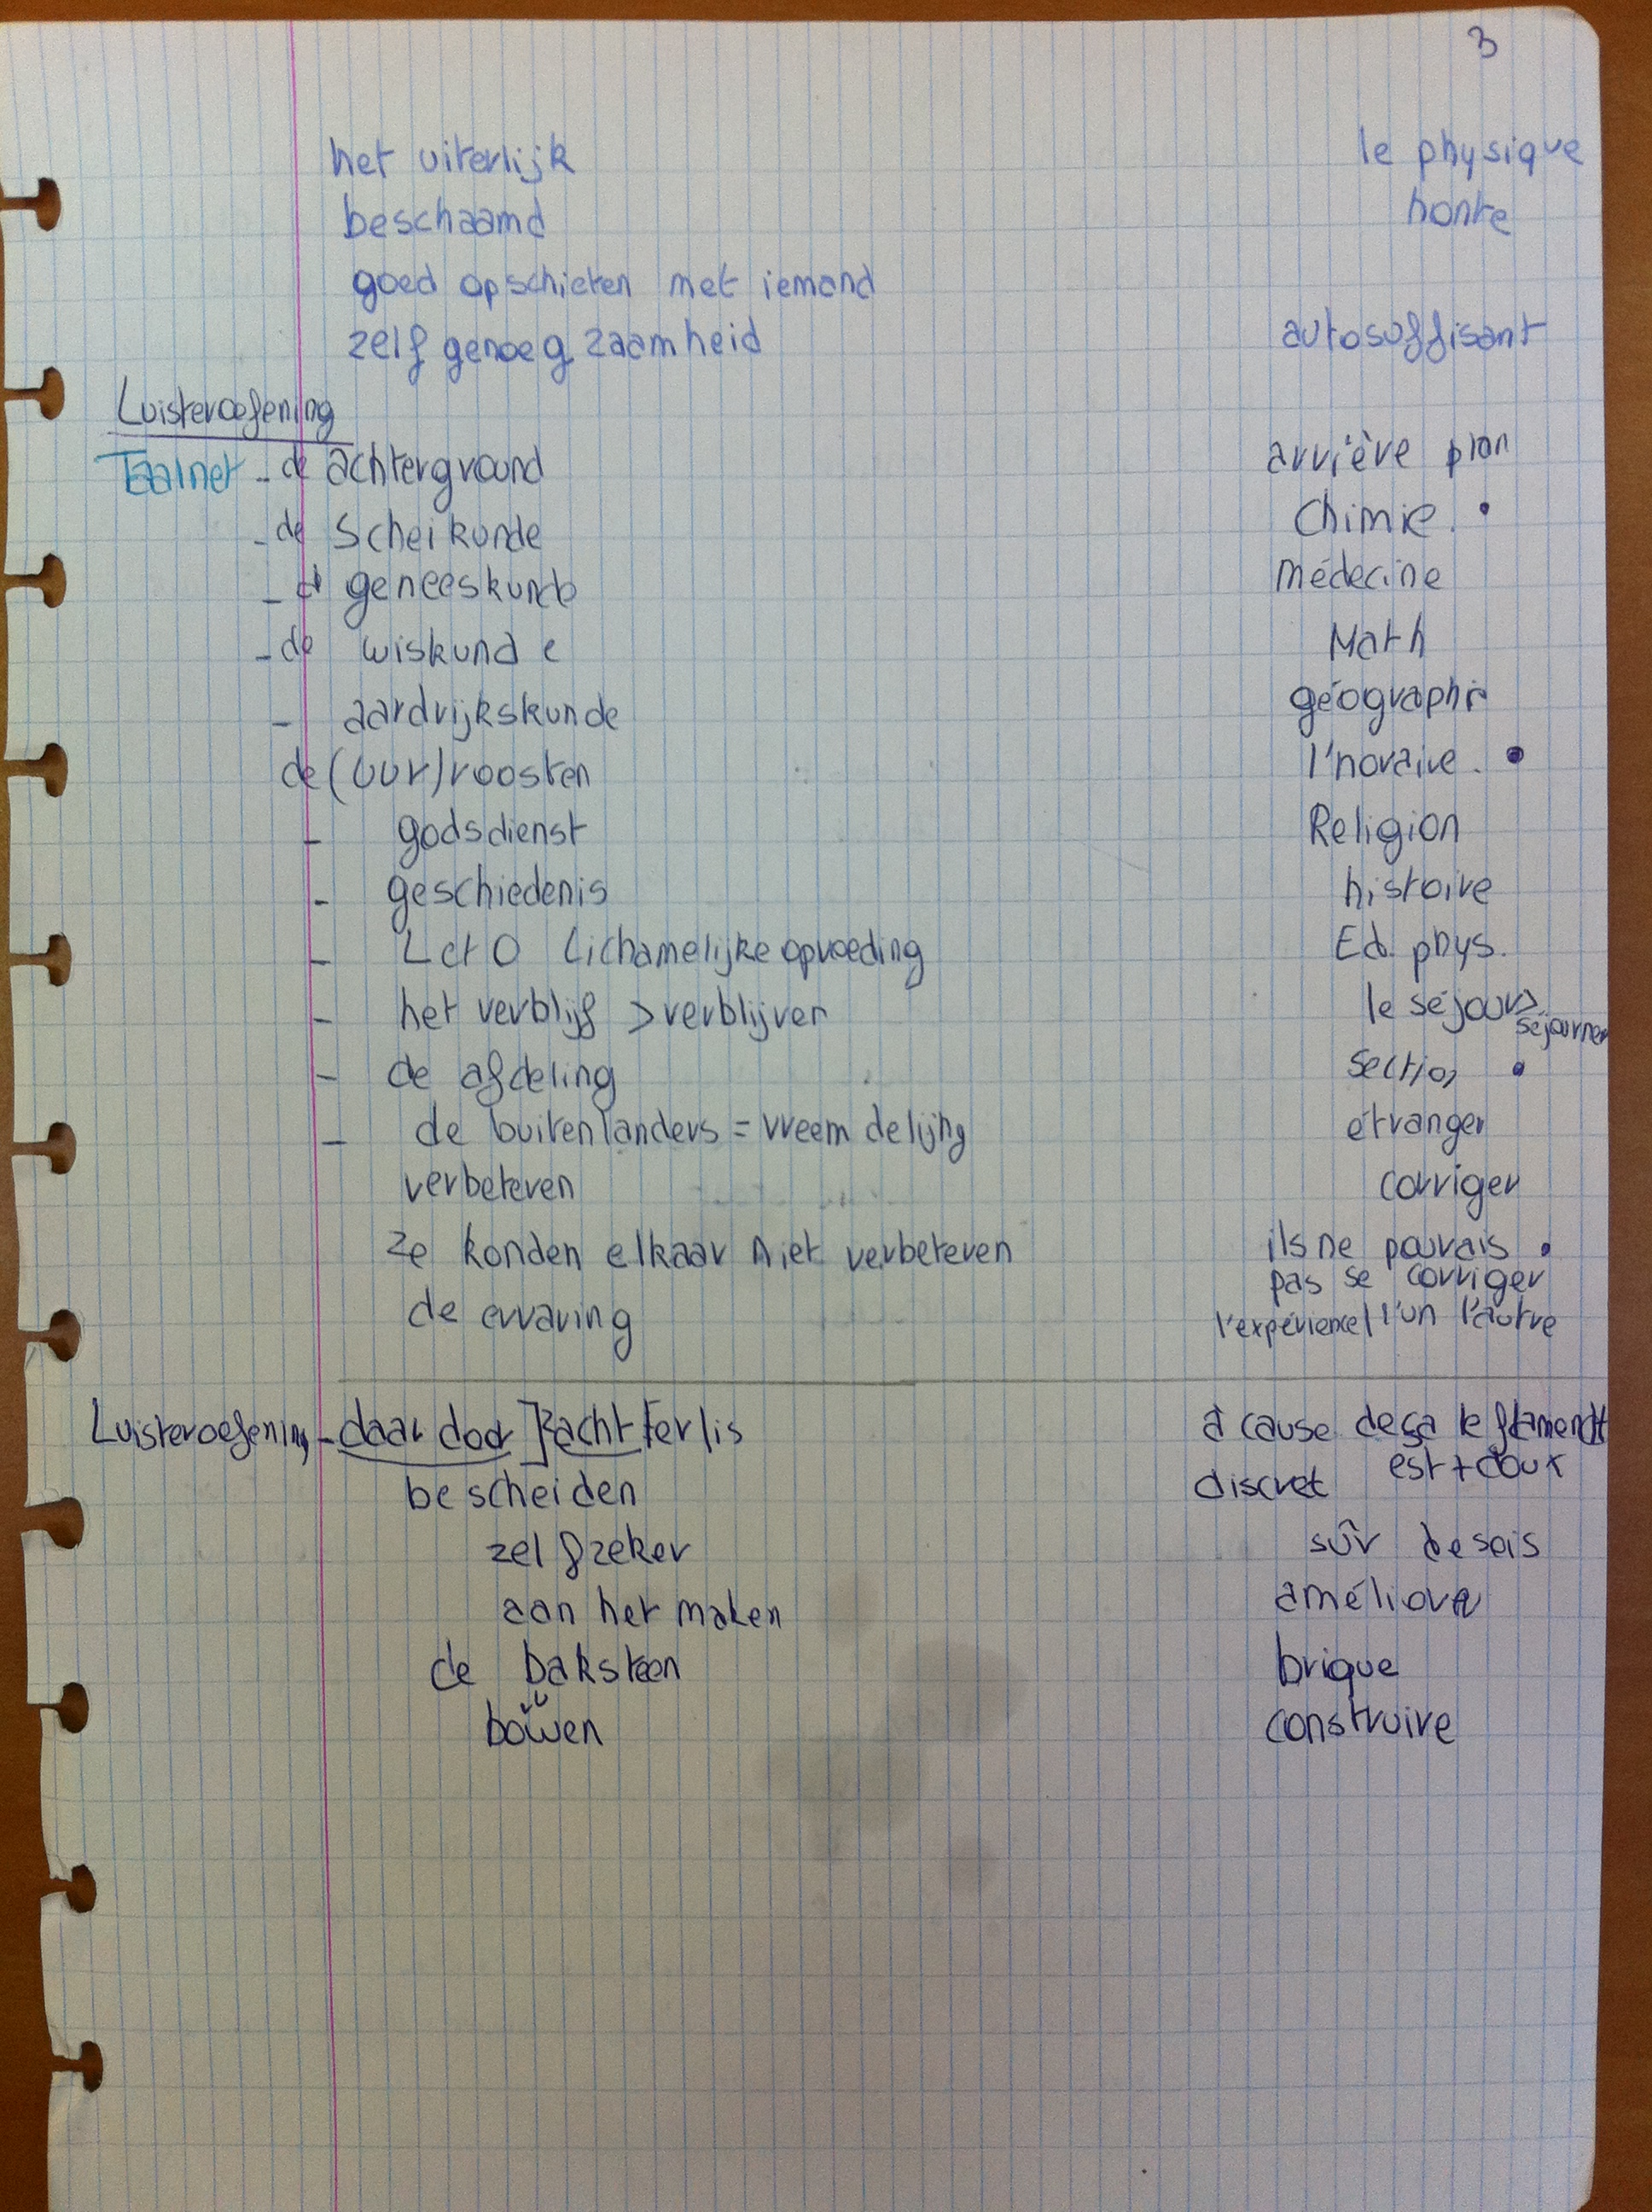 3
het uiterlijk le physique
beschaamd honte
goed opschieten met iemand
zelfgenoegzaamheid autosuffisant
Luisteroefening
Taalnet - de achterground arrière plan
- de Scheikunde Chimie.
- d geneeskunde médecine
- de wiskunde Math
- aardrijkskunde géographie
de (uur)roosten l'horaire.
- godsdienst Religion
- geschiedenis histoire
- L et O Lichamelijke opvoeding Ed. phys.
- het verblijf > verblijven le séjour > séjourner
- de afdeling section
- de buitenlanders = vreemdelijng étranger
verbeteren corriger
ze konden elkaar niet verbeteren ils ne pouvais
pas se corriger
de ervaring l'expérience / l'un l'autre
Luisteroefening - daar door] zachter is à cause de ça le flamend
est + doux
bescheiden discret
zelfzeker sûr de sois
aan het maken améliorer
de baksteen brique
bouwen construire